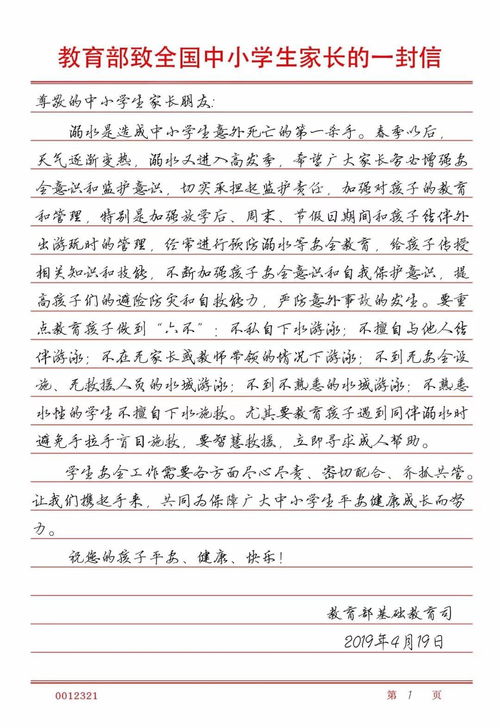 教育部致全国中小学生家长的一封信
尊敬的中小学生家长朋友:
溺水是造成中小学生意外死亡的第一杀手。春季以后,
天气逐渐变热,溺水又进入高发季,希望广大家长务必增强安
全意识和监护意识,切实承担起监护责任,加强对孩子的教育
和管理,特别是加强放学后、周末、节假日期间和孩子结伴外
出游玩时的管理,经常进行预防溺水等安全教育,给孩子传授
相关知识和技能,不断加强孩子安全意识和自我保护意识,提
高孩子们的避险防灾和自救能力,严防意外事故的发生。要重
点教育孩子做到“六不”:不私自下水游泳;不擅自与他人结
伴游泳;不在无家长或教师带领的情况下游泳;不到无安全设
施、无救援人员的水域游泳;不到不熟悉的水域游泳;不熟悉
水性的学生不擅自下水施救。尤其要教育孩子遇到同伴溺水时
避免手拉手盲目施救,要智慧救援,立即寻求成人帮助。
学生安全工作需要各方面尽心尽责、密切配合、齐抓共管。
让我们携起手来,共同为保障广大中小学生平安健康成长而努
力。
祝您的孩子平安、健康、快乐!
教育部基础教育司
2019年4月19日
0012321 第 1 页